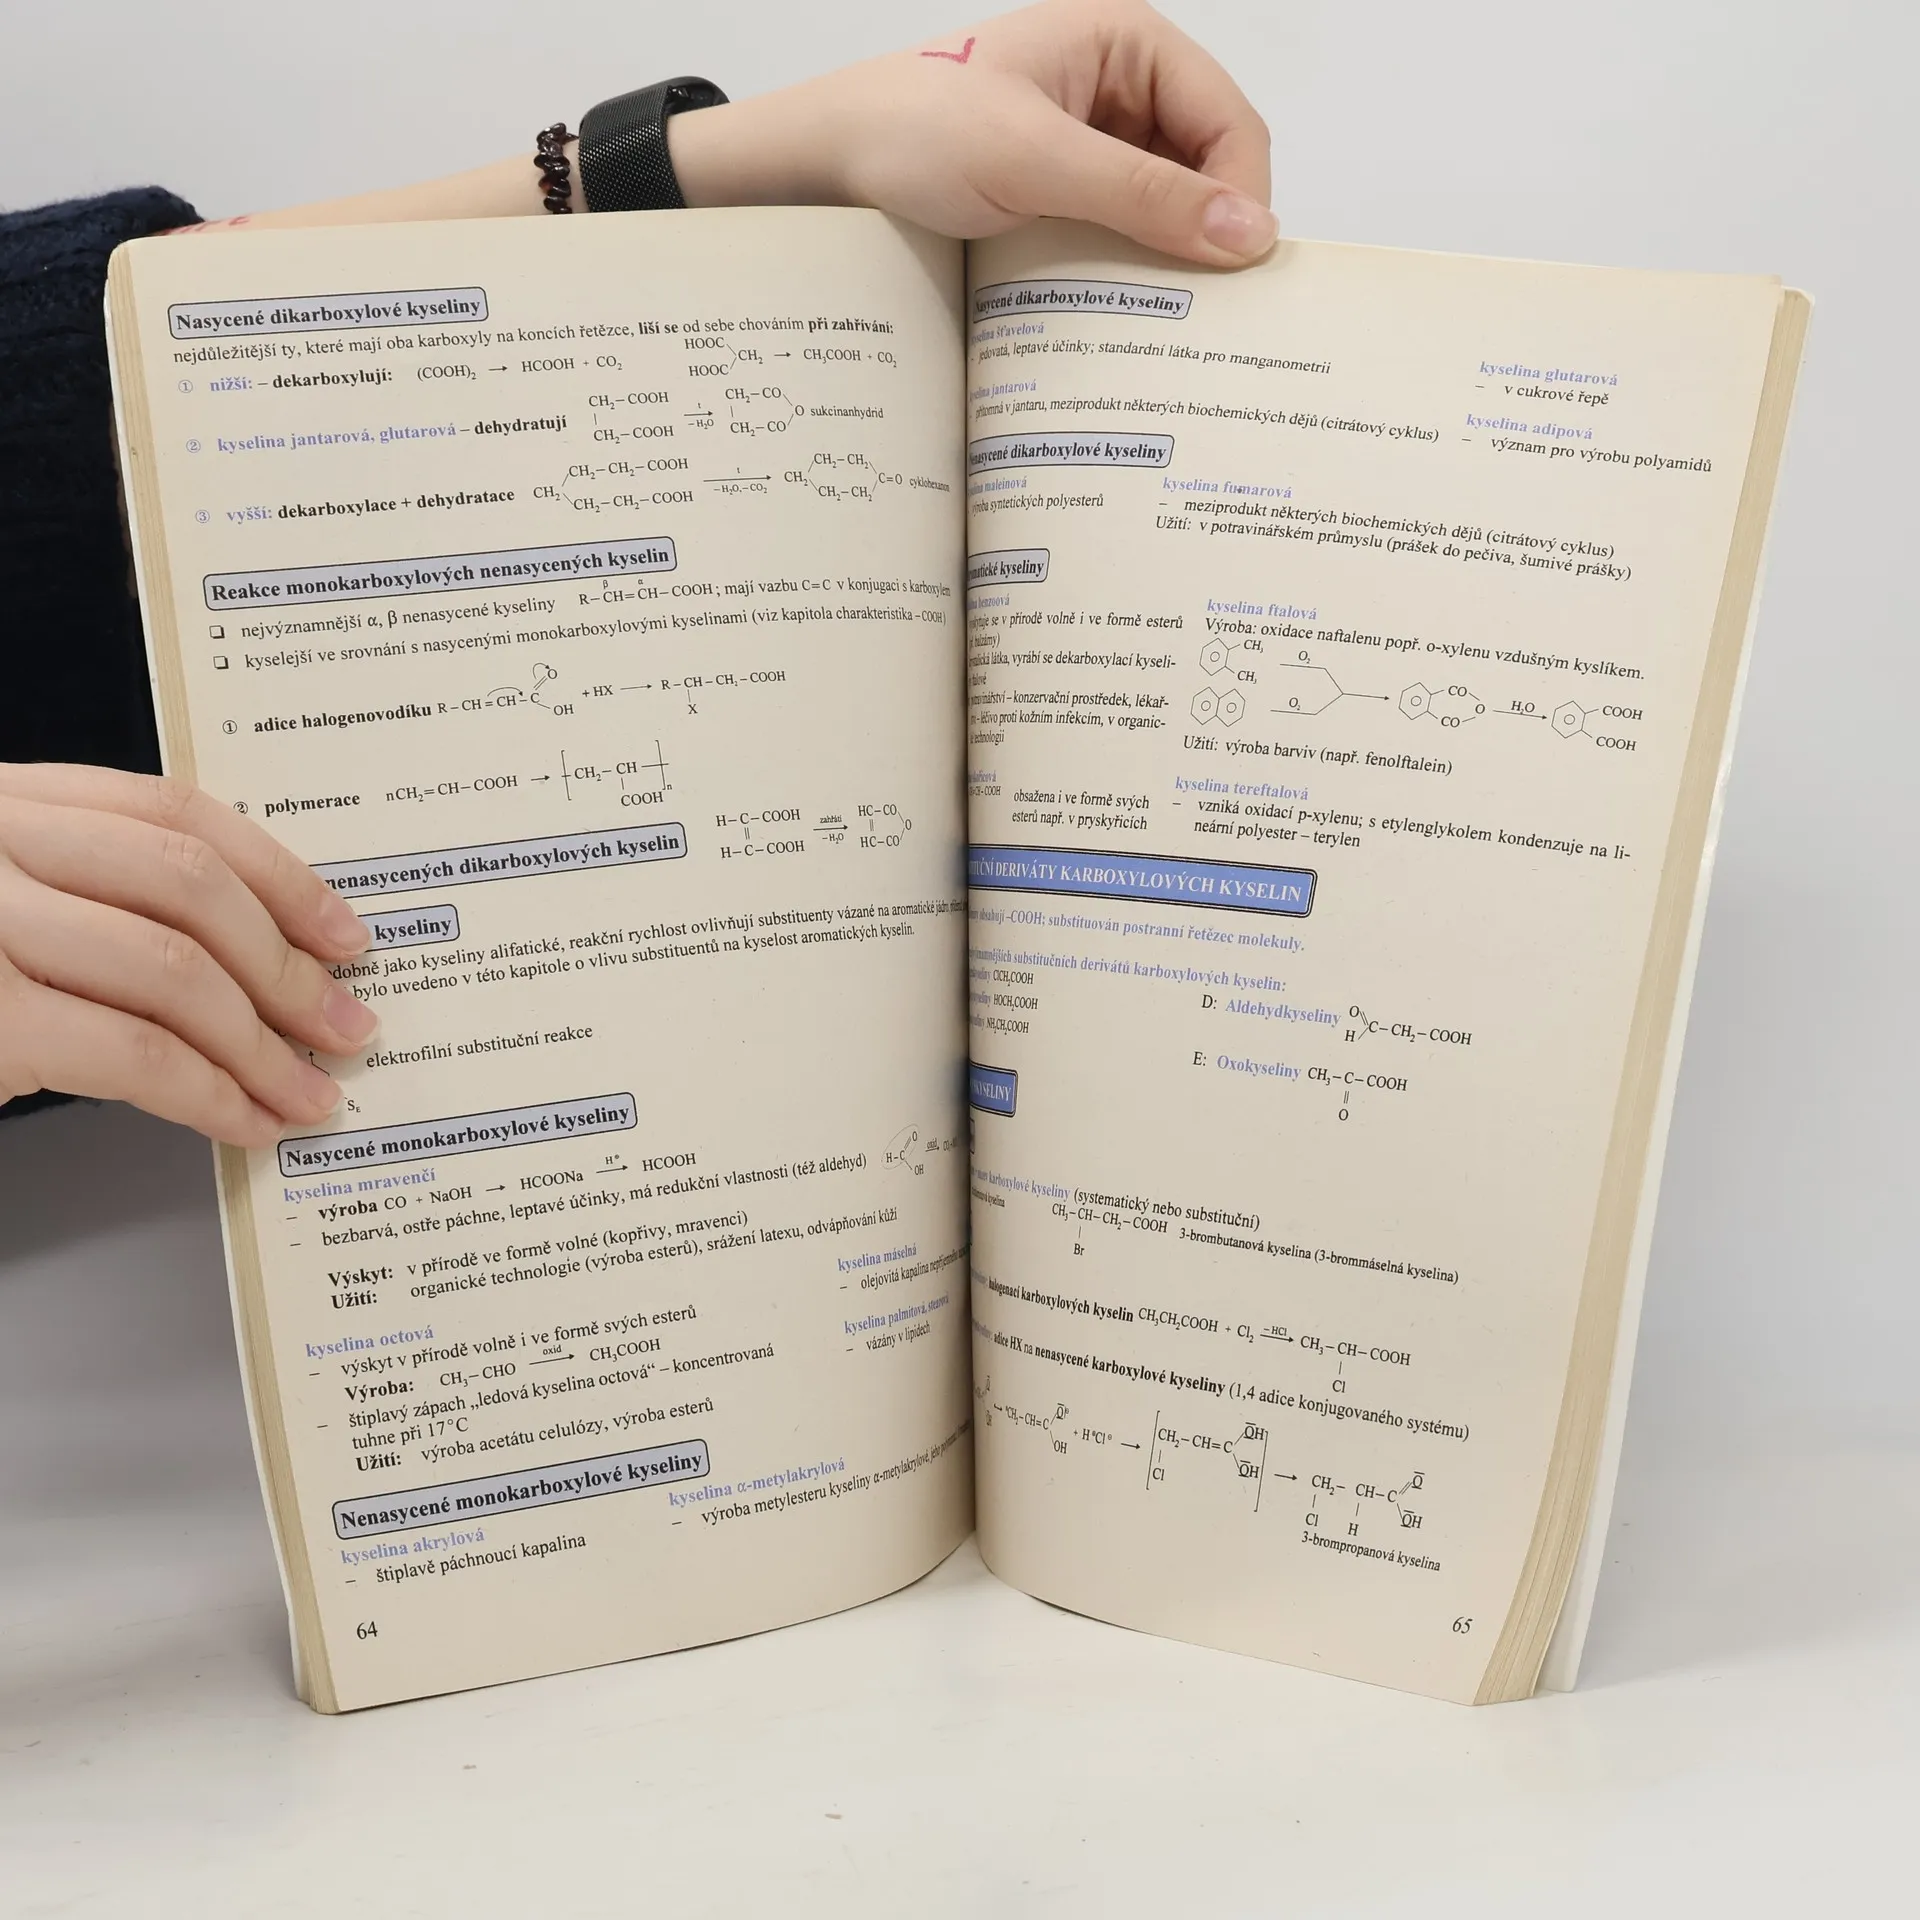 Nasycené dikarboxylové kyseliny
nejdůležitější ty, které mají oba karboxyly na koncích řetězce, liší se od sebe chováním při zahřívání:
① nižší: – dekarboxylují: (COOH)₂ → HCOOH + CO₂
HOOC
CH₂ → CH₃COOH + CO₂
HOOC
② kyselina jantarová, glutarová – dehydratují
CH₂–COOH
CH₂–COOH
t
–H₂O
CH₂–CO
O sukcinanhydrid
CH₂–CO
③ vyšší: dekarboxylace + dehydratace
CH₂–CH₂–COOH
CH₂
CH₂–CH₂–COOH
t
–H₂O,–CO₂
CH₂–CH₂
CH₂
C=O cyklohexanon
CH₂–CH₂
Reakce monokarboxylových nenasycených kyselin
❏ nejvýznamnější α, β nenasycené kyseliny
β α
R–CH=CH–COOH; mají vazbu C=C v konjugaci s karboxylem
❏ kyselejší ve srovnání s nasycenými monokarboxylovými kyselinami (viz kapitola charakteristika –COOH)
① adice halogenovodíku R–CH=CH–C
O
OH
+ HX → R–CH–CH₂–COOH
X
② polymerace nCH₂=CH–COOH → CH₂–CH
COOH
n
nenasycených dikarboxylových kyselin
H–C–COOH
H–C–COOH
zahřátí
–H₂O
HC–CO
O
HC–CO
kyseliny
jako kyseliny alifatické, reakční rychlost ovlivňují substituenty vázané na aromatické
bylo uvedeno v této kapitole o vlivu substituentů na kyselost aromatických kyselin.
elektrofilní substituční reakce
S_E
Nasycené monokarboxylové kyseliny
kyselina mravenčí
– výroba CO + NaOH → HCOONa
H⊕
→ HCOOH
– bezbarvá, ostře páchne, leptavé účinky, má redukční vlastnosti (též aldehyd)
H–C
O
OH
oxid.
Výskyt: v přírodě ve formě volné (kopřivy, mravenci)
Užití: organické technologie (výroba esterů), srážení latexu, odvápňování kůží
kyselina octová
– výskyt v přírodě volně i ve formě svých esterů
Výroba: CH₃–CHO
oxid
→ CH₃COOH
– štiplavý zápach „ledová kyselina octová“ – koncentrovaná
tuhne při 17°C
Užití: výroba acetátu celulózy, výroba esterů
kyselina máselná
– olejovitá kapalina
kyselina palmitová, stearová
– vázány v lipidech
Nenasycené monokarboxylové kyseliny
kyselina akrylová
– štiplavě páchnoucí kapalina
kyselina α-metylakrylová
– výroba metylesteru kyseliny α-metylakrylové,
64
Nasycené dikarboxylové kyseliny
kyselina šťavelová
– jedovatá, leptavé účinky; standardní látka pro manganometrii
kyselina jantarová
– přítomná v jantaru, meziprodukt některých biochemických dějů (citrátový cyklus)
kyselina glutarová
– v cukrové řepě
kyselina adipová
– význam pro výrobu polyamidů
Nenasycené dikarboxylové kyseliny
maleinová
výroba syntetických polyesterů
kyselina fumarová
– meziprodukt některých biochemických dějů (citrátový cyklus)
Užití: v potravinářském průmyslu (prášek do pečiva, šumivé prášky)
kyseliny
benzoová
se v přírodě volně i ve formě esterů
látka, vyrábí se dekarboxylací kyseli-
– konzervační prostředek, lékař-
– léčivo proti kožním infekcím, v organic-
technologii
obsažena i ve formě svých
esterů např. v pryskyřicích
kyselina ftalová
Výroba: oxidace naftalenu popř. o-xylenu vzdušným kyslíkem.
CH₃
CH₃
O₂
O₂
CO
O
CO
H₂O
COOH
COOH
Užití: výroba barviv (např. fenolftalein)
kyselina tereftalová
– vzniká oxidací p-xylenu; s etylenglykolem kondenzuje na li-
neární polyester – terylen
DERIVÁTY KARBOXYLOVÝCH KYSELIN
obsahují –COOH; substituován postranní řetězec molekuly.
substitučních derivátů karboxylových kyselin:
ClCH₂COOH
HOCH₂COOH
NH₂CH₂COOH
D: Aldehydkyseliny
O
C–CH₂–COOH
H
E: Oxokyseliny CH₃–C–COOH
O
KYSELINY
karboxylové kyseliny (systematický nebo substituční)
CH₃–CH–CH₂–COOH 3-brombutanová kyselina (3-brommáselná kyselina)
Br
halogenací karboxylových kyselin CH₃CH₂COOH + Cl₂
–HCl
→ CH₃–CH–COOH
Cl
adice HX na nenasycené karboxylové kyseliny (1,4 adice konjugovaného systému)
⊕CH₂–CH=C
OH
+ H⊕Cl⊖ →
CH₂–CH=C
OH
OH
Cl
→ CH₂–CH–C
O
OH
Cl H
3-brompropanová kyselina
65